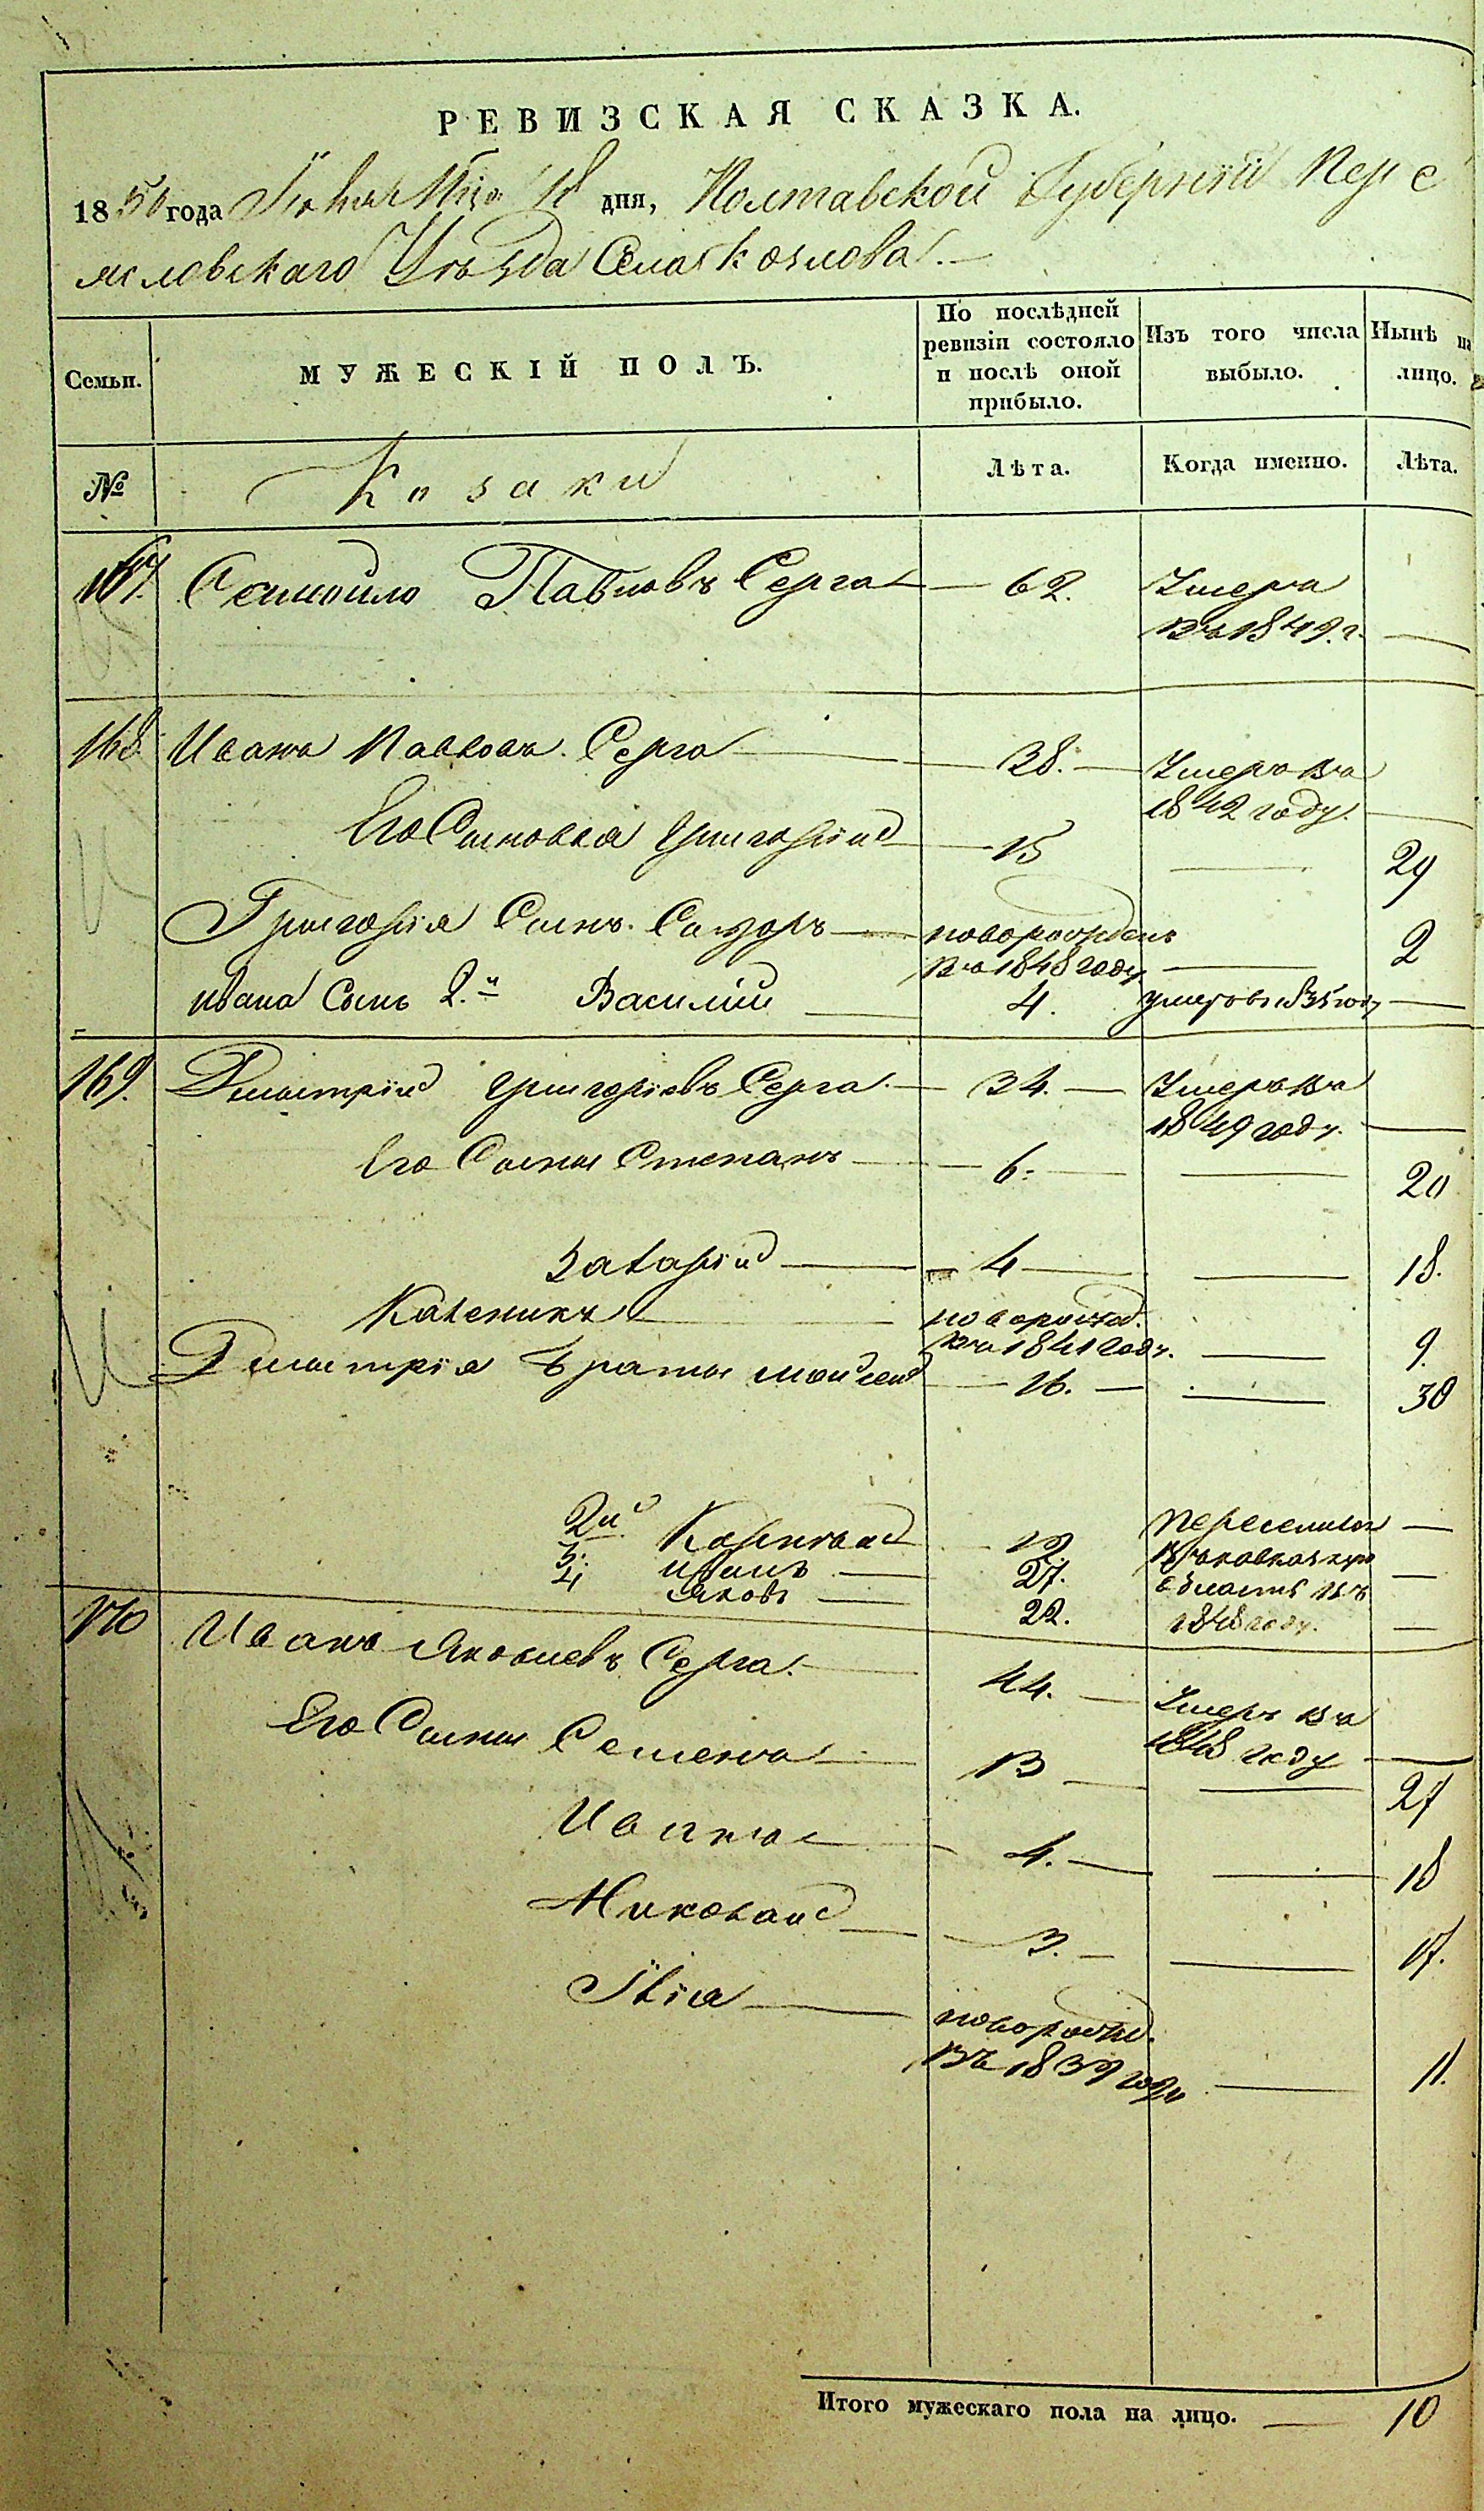 РЕВИЗСКАЯ СКАЗКА.
1850 года дня, Полтавской Губерніи Пере
яславскаго Уѣзда Села Козлова.
Семьи.
МУЖЕСКІЙ ПОЛЪ.
По послѣдней ревизіи состояло и послѣ оной прибыло.
Изъ того числа выбыло.
Нынѣ на лицо.
№
Козаки
Лѣта.
Когда именно.
Лѣта.
167. Самойло Павловъ Серга — 62. Умеръ
въ 1849. г. —
168. Иванъ Павловъ Серга — 38. — Умеръ въ
1842 году. —
Его Сыновья Григорій — 15 — 29
Григорія Сынъ новорожденъ
въ 1848 году — 2
Ивана Сынъ 2.й Василій — 4. умеръ в 1835 году —
169. Дмитрій Григоріевъ Серга. — 34. — Умеръ въ
1849 году. —
Его Сыны Степанъ — 6. — 20
Захарій — 4 — 18.
Каленикъ — новорожд.
въ 1841 году. — 9.
Дмитрія братья Моисей — 16. — 30
2й Корнилій 12 Переселился —
3. Иванъ — 27. въ Кавказскую —
4 Яковъ — 22. область въ
1848 году. —
170 Иванъ Яковлевъ Серга. — 44. — Умеръ въ
1848 году —
Его Сыны Семенъ — 13 — 27
Иванъ — 4. — 18
Николай — 3. — 17.
Илія — новорожд.
въ 1839 году — 11.
Итого мужескаго пола на лицо. — 10